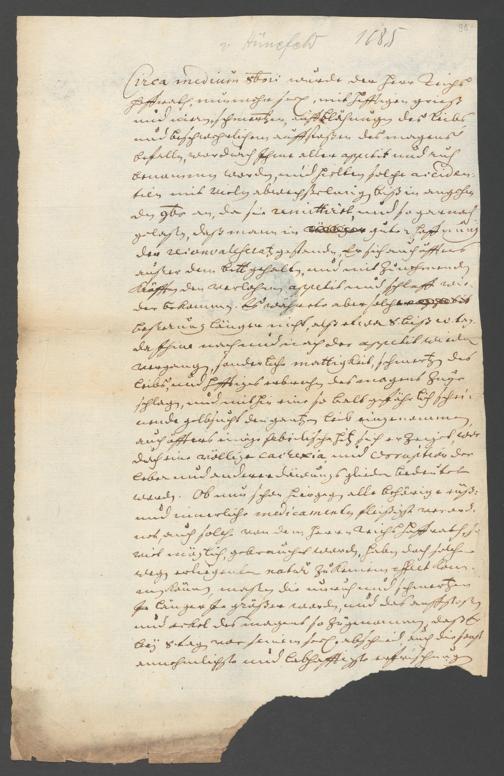 v. Hünefeld 1685
Circa medium 8bris wurde der Herr Reichs
Hoffrath, nunmehr seel., mit hefftigen grieß
und nierenschmertzen, auffbläsungen des leibs
und beschwerlichem auffstoßen des magens
befallen, wordurch Ihme aller appetit und ruh
benommen worden, und hielten solche acciden-
tien mit vieler abwechßelung, biß in angehen
den 9bris an, da sie remittirt und so gar nach
gelaßen, daß man in guter hoffnung
der reconvalescentz gestanden, Er sich auch öffters
außer dem bett gehalten, und mit zunehmenden
kräfften den verlohrnen appetit und schlaff wie-
der bekommen. Es währete aber solche
beßerung länger nicht alß etwa 8 biß 10 tag,
da Ihme nach und nach der appetit wieder
vergangen, sonderliche mattigkeit, schmertzen des
leibs, und hefftiges erbrechen des magens zuge
schlagen, und mithin eine so bald gefährlich schei-
nende gelbsucht den gantzen leib eingenommen,
auch öffters einige febrilische sich erzeiget, wor
durch eine völlige cachexia und corruption der
leber und anderer däuungs glieder bedeutet
worden. Ob nun schon hiergegen alle behörige eüße-
und innerliche medicamenta fleißigst verord-
net, auch solche von dem Herrn Reichs Hoffrath, so
viel möglich, gebraucht worden, haben doch solche
wegen erliegender natur zu keinem effect kom-
men können, maßen die unruh und schmertzen
je länger je größer worden, und das auffstoßen
und eckel des magens so zugenommen, daß Er
bey 8 tag vor seinem seel. abscheid auch die sonst
annehmlichste und labhafftigste erfrischung